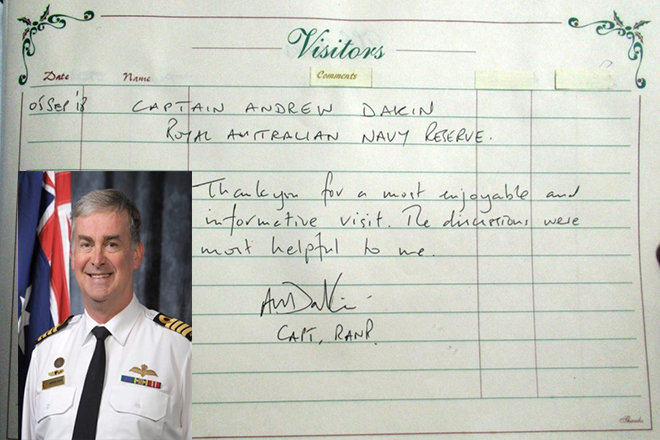 Visitors
Date Name Comments
05 SEP '18 CAPTAIN ANDREW DAKIN
ROYAL AUSTRALIAN NAVY RESERVE.
Thank you for a most enjoyable and
informative visit. The discussions were
most helpful to me.
CAPT, RANR.